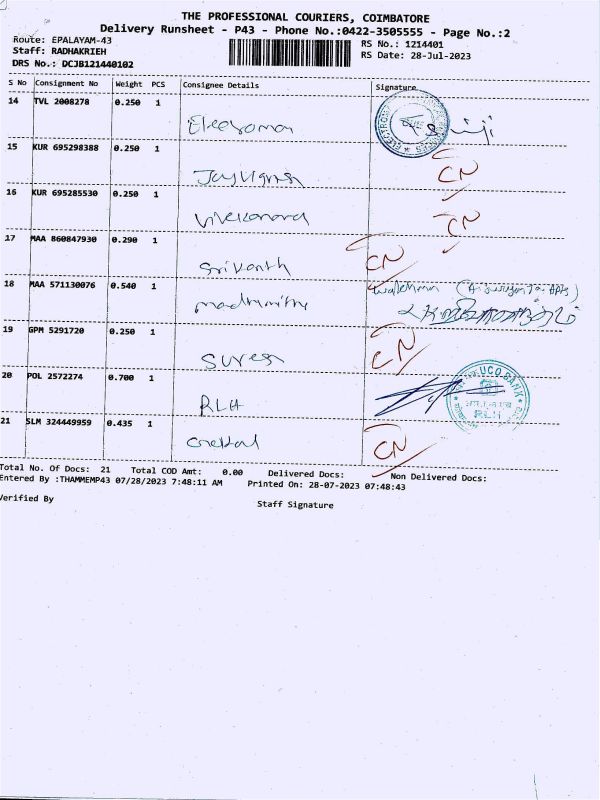 THE PROFESSIONAL COURIERS, COIMBATORE
Delivery Runsheet - P43 - Phone No.:0422-3505555 - Page No.:2
Route: EPALAYAM-43
Staff: RADHAKRIEH
DRS No.: DCJB121440102
RS No.: 1214401
RS Date: 28-Jul-2023
S No Consignment No Weight PCS Consignee Details Signature
14 TVL 2008278 0.250 1
15 KUR 695298388 0.250 1
CN
16 KUR 695285530 0.250 1
Vivekanand CN
17 MAA 860847930 0.290 1
Srikanth CN
18 MAA 571130076 0.540 1
19 GPM 5291720 0.250 1
Suresh CN
20 POL 2572274 0.700 1
RLH
UCO BANK
RLH
21 SLM 324449959 0.435 1
CN
Total No. Of Docs: 21 Total COD Amt: 0.00 Delivered Docs: Non Delivered Docs:
Entered By :THAMMEMP43 07/28/2023 7:48:11 AM Printed On: 28-07-2023 07:48:43
Verified By Staff Signature